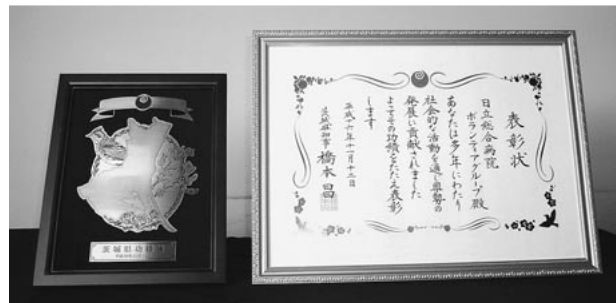 表彰状
日立総合病院
ボランティアグループ殿
あなたは多年にわたり
社会的な活動を通し県勢の
発展に貢献されました
よってその功績をたたえ表彰
します
平成十六年十一月十三日
茨城県知事 橋本昌
茨城県功績賞